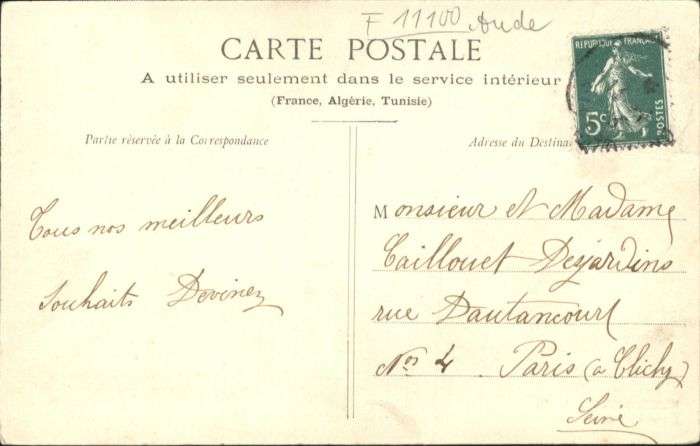 F 11100 Aude
CARTE POSTALE
A utiliser seulement dans le service intérieur
(France, Algérie, Tunisie)
REPUBLIQUE FRANÇAISE
5c
POSTES
Partie réservée à la Correspondance
Adresse du Destina
Tous nos meilleurs
Souhaits Devinez
Monsieur et Madame
Caillouet Desjardins
rue Dautancourt
Nos 4 Paris (a Clichy)
Seine